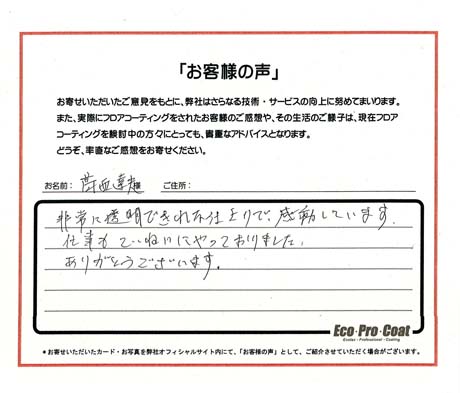 「お客様の声」
お寄せいただいたご意見をもとに、弊社はさらなる技術・サービスの向上に努めてまいります。
また、実際にフロアコーティングをされたお客様のご感想や、その生活のご様子は、現在フロア
コーティングを検討中の方々にとっても、貴重なアドバイスとなります。
どうぞ、率直なご感想をお寄せください。
お名前： 様 ご住所：
非常に透明できれいな仕上りで、感動しています。
仕事もていねいにやっておりました。
ありがとうございます。
Eco・Pro・Coat
Ecolax・Professional・Coating
＊お寄せいただいたカード・お写真を弊社オフィシャルサイト内にて、「お客様の声」として、ご紹介させていただく場合がございます。